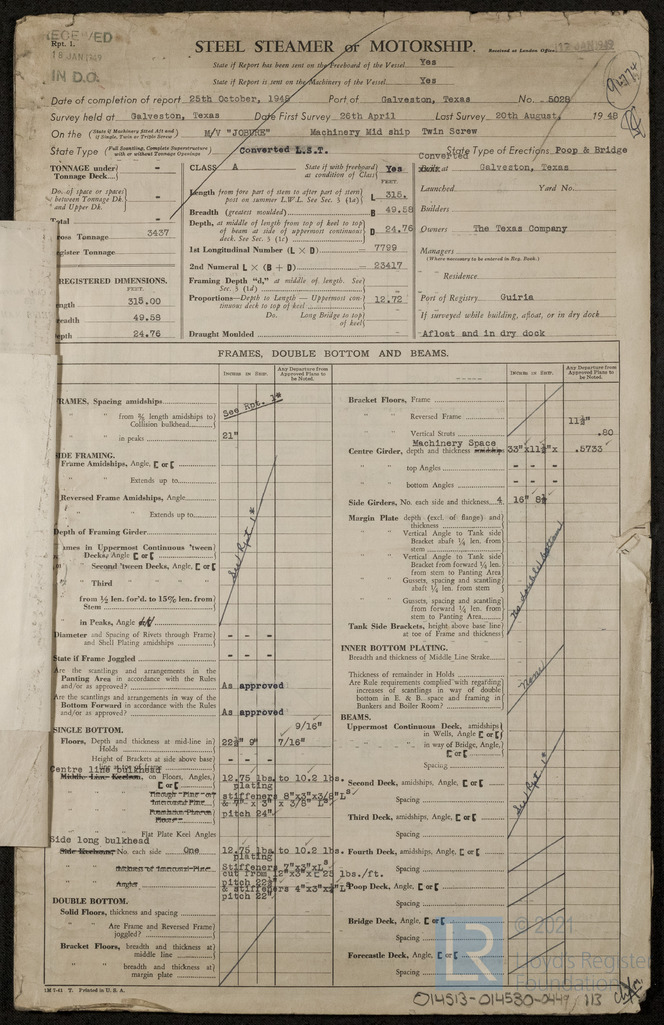 Rpt. 1.
RECEIVED
18 JAN 1949
IN D.O.
STEEL STEAMER or MOTORSHIP.
Received at London Office 17 JAN 1949
State if Report has been sent on the Freeboard of the Vessel Yes
State if Report is sent on the Machinery of the Vessel Yes
Date of completion of report 25th October, 1948 Port of Galveston, Texas No. 5028
Survey held at Galveston, Texas Date First Survey 26th April Last Survey 20th August, 1948
On the (State if Machinery fitted Aft and if Single, Twin or Triple Screw) M/V "JOBURE" Machinery Mid ship Twin Screw
State Type (Full Scantling, Complete Superstructure with or without Tonnage Openings) Converted L.S.T. State Type of Erections Poop & Bridge
TONNAGE under Tonnage Deck
Do. of space or spaces between Tonnage Dk. and Upper Dk.
Total
Gross Tonnage 3437
Register Tonnage
REGISTERED DIMENSIONS.
FEET.
Length 315.00
Breadth 49.58
Depth 24.76
CLASS A State if with freeboard as condition of Class Yes
FEET.
Length from fore part of stem to after part of stern post on summer L.W.L. See Sec. 3 (1a) L 315.
Breadth (greatest moulded) B 49.58
Depth, at middle of length from top of keel to top of beam at side of uppermost continuous deck. See Sec. 3 (1c) D 24.76
1st Longitudinal Number (L × D) 7799
2nd Numeral L × (B + D) 23417
Framing Depth "d," at middle of length. See Sec. 3 (1d)
Proportions—Depth to Length—Uppermost continuous deck to top of keel 12.72
Do. Long Bridge to top of keel
Draught Moulded
Converted at Galveston, Texas
Launched Yard No.
Builders
Owners The Texas Company
Managers
(Where necessary to be entered in Reg. Book.)
" Residence
Port of Registry Guiria
If surveyed while building, afloat, or in dry dock
Afloat and in dry dock
FRAMES, DOUBLE BOTTOM AND BEAMS.
INCHES IN SHIP. Any Departure from Approved Plans to be Noted.
FRAMES, Spacing amidships See Rpt. 1*
" " from ⅗ length amidships to Collision bulkhead
" " in peaks 21"
SIDE FRAMING.
Frame Amidships, Angle, [ or [
" " Extends up to
Reversed Frame Amidships, Angle
" " Extends up to
Depth of Framing Girder
Frames in Uppermost Continuous 'tween Decks, Angle [ or [
" Second 'tween Decks, Angle, [ or [
" Third " "
" from ½ len. for'd. to 15% len. from Stem
" in Peaks, Angle
See Rpt 1*
Diameter and Spacing of Rivets through Frame and Shell Plating amidships - - -
State if Frame Joggled - - -
Are the scantlings and arrangements in the Panting Area in accordance with the Rules and/or as approved? As approved
Are the scantlings and arrangements in way of the Bottom Forward in accordance with the Rules and/or as approved? As approved
SINGLE BOTTOM.
Floors, Depth and thickness at mid-line in Holds 22½" 9" 7/16" 9/16"
" Height of Brackets at side above base line at toe of frame - - -
Centre line bulkhead
Middle Line Keelson, on Floors, Angles, [ or [ 12.75 lbs. to 10.2 lbs.
plating
stiffeners 8"x3"x3/8" Ls
& 7" x 3" x 3/8" Ls
pitch 24"
" " Flat Plate Keel Angles
Side long bulkhead
Side Keelsons, No. each side One 12.75 lbs. to 10.2 lbs.
plating
Stiffeners 7"x3"xLs
cut from 12"x3"x[ 25 lbs./ft.
pitch 22½"
pitch 22"
DOUBLE BOTTOM.
Solid Floors, thickness and spacing
" " Are Frame and Reversed Frame joggled?
Bracket Floors, breadth and thickness at middle line
" " breadth and thickness at margin plate
1M 7-41 T. Printed in U. S. A.
INCHES IN SHIP. Any Departure from Approved Plans to be Noted.
Bracket Floors, Frame
" " Reversed Frame 11½"
" " Vertical Struts .80
Machinery Space
Centre Girder, depth and thickness amidships 33"x11½"x .5733
" " top Angles - - -
" " bottom Angles - - -
Side Girders, No. each side and thickness 4 16" 8½
Margin Plate depth (excl. of flange) and thickness
" " Vertical Angle to Tank side Bracket abaft ¼ len. from stem
" " Vertical Angle to Tank side Bracket from forward ¼ len. from stem to Panting Area
" " Gussets, spacing and scantling abaft ¼ len. from stem
" " Gussets, spacing and scantling from forward ¼ len. from stem to Panting Area
Tank Side Brackets, height above base line at toe of Frame and thickness
No double bottom
INNER BOTTOM PLATING.
Breadth and thickness of Middle Line Strake
Thickness of remainder in Holds
Are Rule requirements complied with regarding increases of scantlings in way of double bottom in E. & B. space and framing in Bunkers and Boiler Room?
None
BEAMS.
Uppermost Continuous Deck, amidships in Wells, Angle [ or [
" " in way of Bridge, Angle, [ or [
" " Spacing
Second Deck, amidships, Angle, [ or [
Spacing
Third Deck, amidships, Angle, [ or [
Spacing
See Rpt 1*
Fourth Deck, amidships, Angle, [ or [
Spacing
Poop Deck, Angle, [ or [
Spacing
Bridge Deck, Angle, [ or [
Spacing
Forecastle Deck, Angle, [ or [
Spacing
LR
© 2021
Lloyd's Register
Foundation
014513-014530-0449 1/3